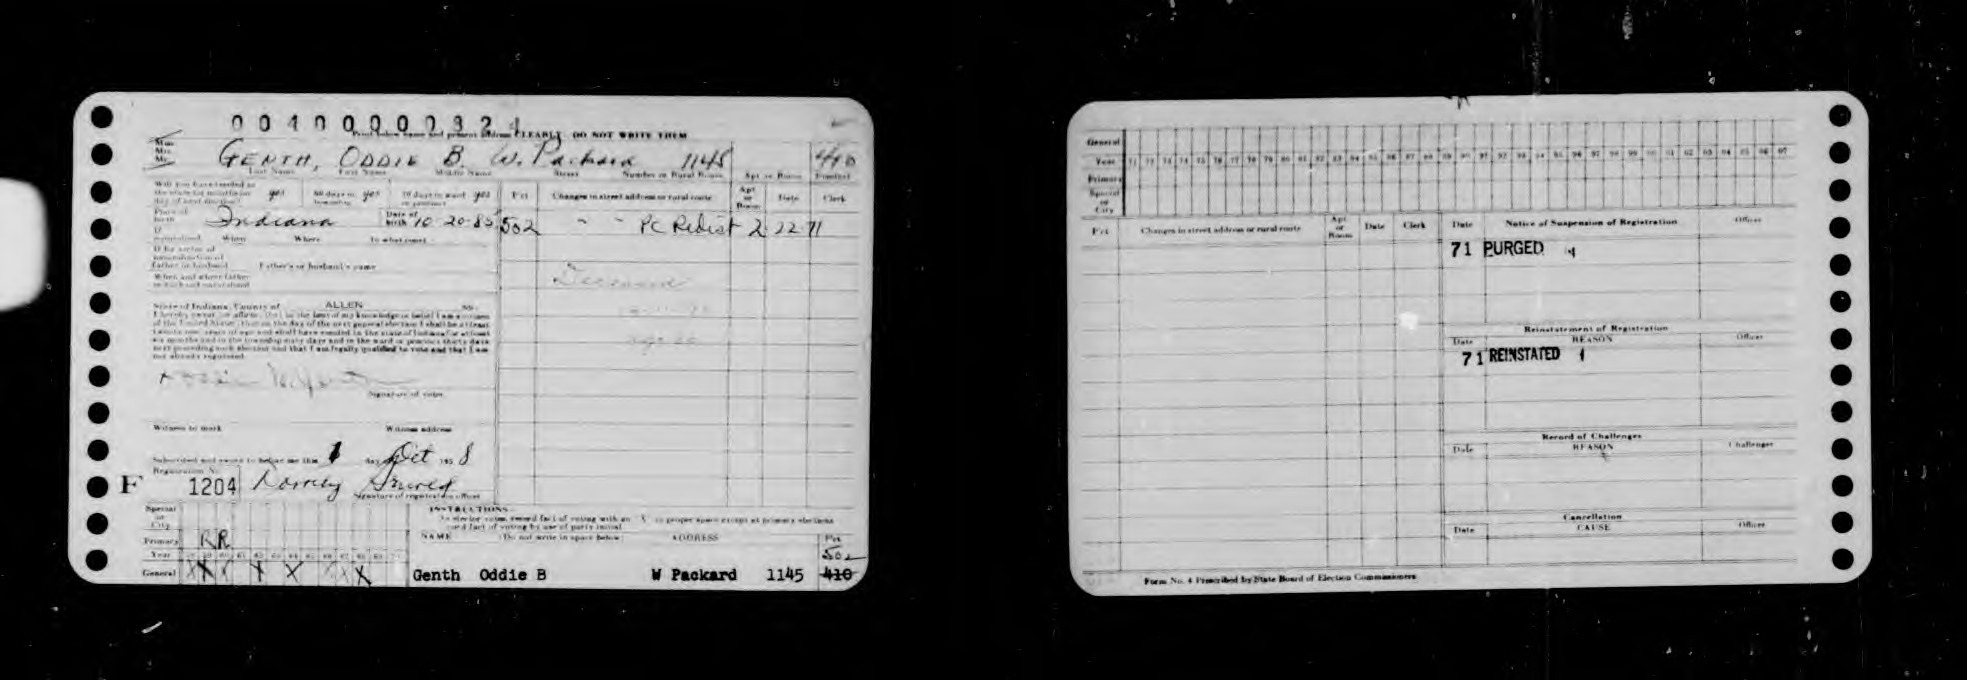 0040000032
Print below name and present address CLEARLY. DO NOT WRITE THEM
Miss
Mrs.
Mr.
GENTH, ODDIE B. W. Packard 1145 410
Last Name First Name Middle Name Street Number or Rural Route Apt or Room Precinct
Will you have resided in the state six months on day of next election? yes 60 days in township yes 30 days in ward or precinct yes
Pct Changes in street address or rural route Apt or Room Date Clerk
Place of birth Indiana Date of birth 10-20-85
502 " " PC Redist 2 22 71
If naturalized When Where To what court
Father's or husband's name
Deceased
State of Indiana, County of ALLEN SS.
I hereby swear (or affirm) that to the best of my knowledge or belief I am a citizen
of the United States, that on the day of the next general election I shall be at least
twenty-one years of age and shall have resided in the state of Indiana for at least
six months and in the township sixty days and in the ward or precinct thirty days
next preceding such election and that I am legally qualified to vote and that I am
not already registered.
Signature of voter
Witness to mark Witness address
Subscribed and sworn to before me this 1 day Oct 1958
Registration No.
F 1204
Signature of registration officer
Special or City
INSTRUCTIONS
As elector votes, record fact of voting with an X in proper space except at primary elections
record fact of voting by use of party initial
Primary R R
NAME (Do not write in space below) ADDRESS Pct
502
Year
General
Genth Oddie B W Packard 1145 410
General
Year 72 73 74 75 76 77 78 79 80 81 82 83 84 85 86 87 88 89 90 91 92 93 94 95 96 97 98 99 00 01 02 03 04 05 06 07
Primary
Special or City
Pct Changes in street address or rural route Apt or Room Date Clerk
Date Notice of Suspension of Registration Officer
71 PURGED
Reinstatement of Registration
Date REASON Officer
71 REINSTATED
Record of Challenges
Date REASON Challenger
Cancellation
Date CAUSE Officer
Form No. 4 Prescribed by State Board of Election Commissioners